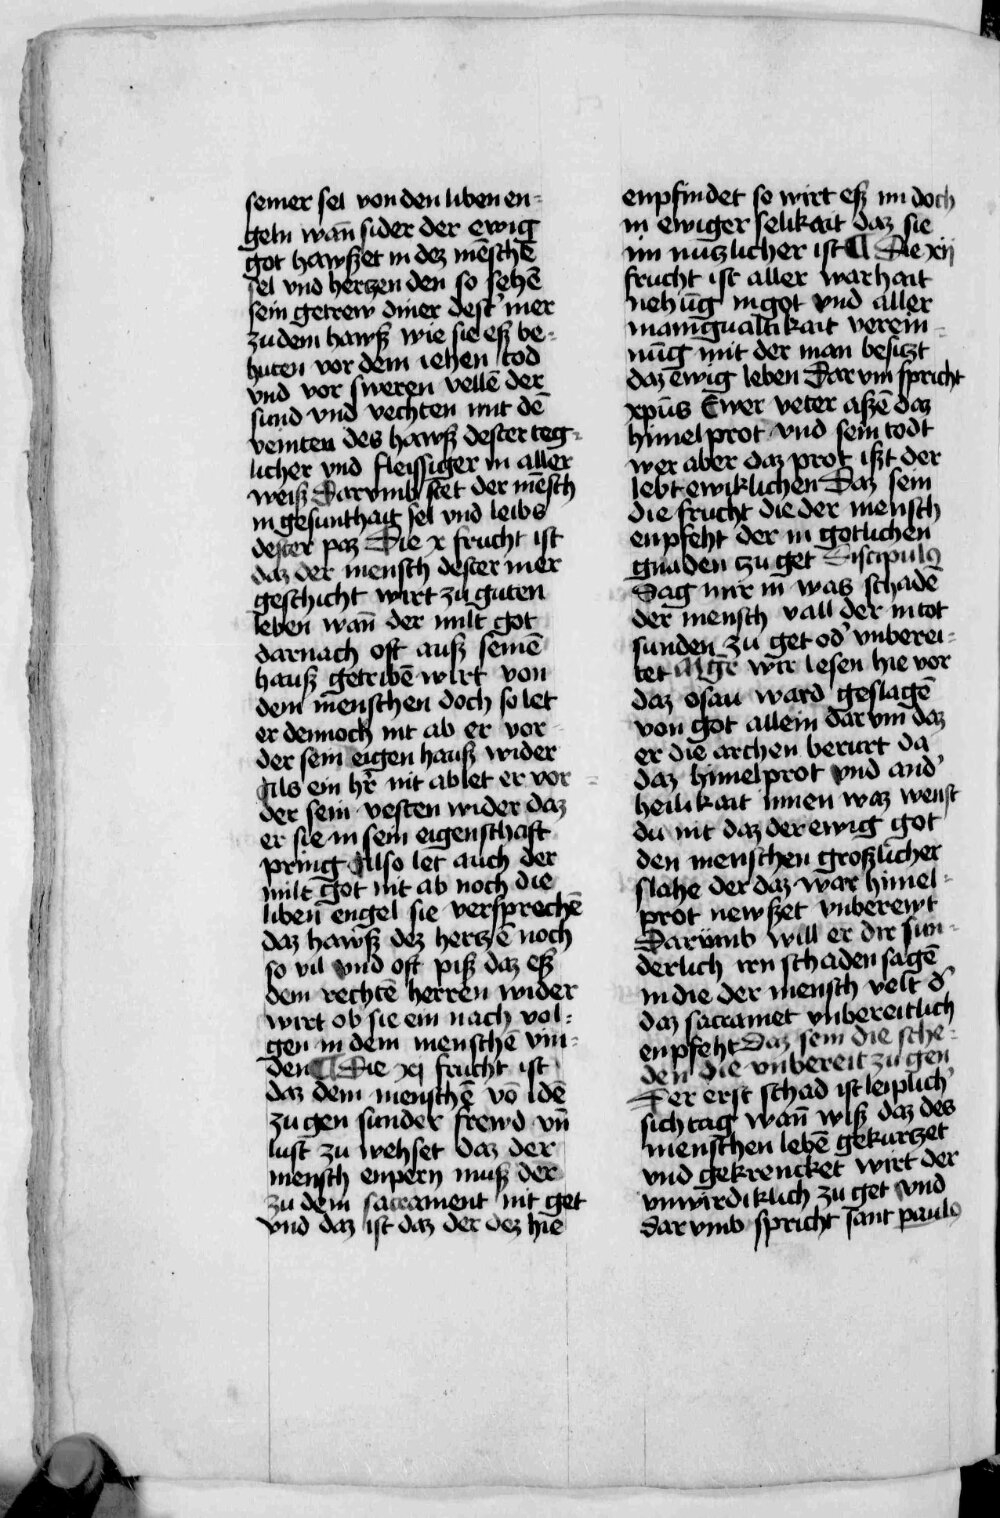 seiner sel von den liben en-
geln wan̄ sider der ewig
got hawszet in dez mēschē
sel vnd hertzen den so sehē
sein getrew diner dest' mer
zu dem hawsz wie sie esz be-
huten vor dem iehen tod
vnd vor sweren vellē der
sund vnd vechten mit dē
veinten des hawsz dester teg-
licher vnd fleissiger in aller
weisz Darvmb stet der mēsch
in gesunthait sel vnd leibs
dester paz Die x frucht ist
daz der mensch dester mer
geschicht wirt zu guten
leben wan̄ der milt got
darnach oft ausz seinē
hausz getribē wirt von
dem menschen doch so let
er dennoch nit ab er vor
der sein eigen hausz wider
Als ein hr̄ nit ablet er vor-
der sein vesten wider daz
er sie in sein eigenschaft
pring Also let auch der
milt got nit ab noch die
liben engel sie versprechē
daz hawsz dez hertzē noch
so vil vnd oft pisz daz esz
dem rechtē herren wider
wirt ob sie ein nach vol-
gen in dem menschē vin-
den ¶ Die xj frucht ist
daz dem menschē vō idē
zu gen sunder frewd vn̄
lust zu wehset daz der
mensch enpern musz der
zu dem sacrament nit get
vnd daz ist daz der dez hie
enpfindet so wirt esz im doch
in ewiger selikait daz sie
im nutzlicher ist ¶ Die xij
frucht ist aller warhait
nehūg in got vnd aller
manigualtikait verein-
nūg mit der man besitzt
daz ewig leben Dar vm spricht
xpūs Ewer veter aszē daz
himel prot vnd sein todt
wer aber daz prot iszt der
lebt ewiklichen Daz sein
die frucht die der mensch
enpfeht der in gotlichen
gnaden zu get Discipulus
Sag mir in waz schadē
der mensch vall der in tot
sunden zu get od' vnberei-
tet Mgr̄ Wir lesen hie vor
daz osau ward geslagē
von got allein dar vm daz
er die archen berurt da
daz himelprot vnd and'
heilikait innen waz wenst
du nit daz der ewig got
den menschen groszlicher
slahe der daz war himel-
prot newszet vnberewt
Darumb will er dir sun-
derlich irn schaden sagē
in die der mensch velt d'
daz sacramēt vnbereitlich
enpfeht Daz sein die sche-
den die vnbereit zu gen
Der erst schad ist leiplich'
sichtag wan̄ wisz daz des
menschen lebē gekurtzet
vnd gekrencket wirt der
vnwirdiklich zu get vnd
dar vmb spricht sant paulus